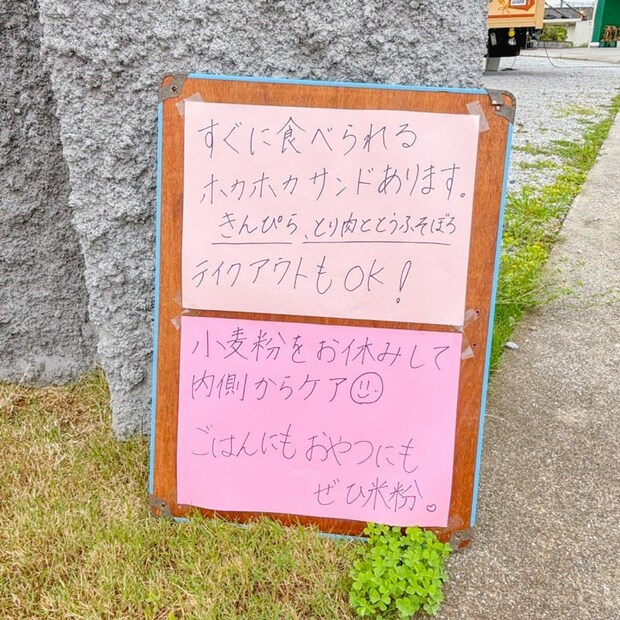 すぐに食べられる
ホカホカサンドあります。
きんぴら、とり肉ととうふそぼろ
テイクアウトもOK!
小麦粉をお休みして
内側からケア
ごはんにもおやつにも
ぜひ米粉。